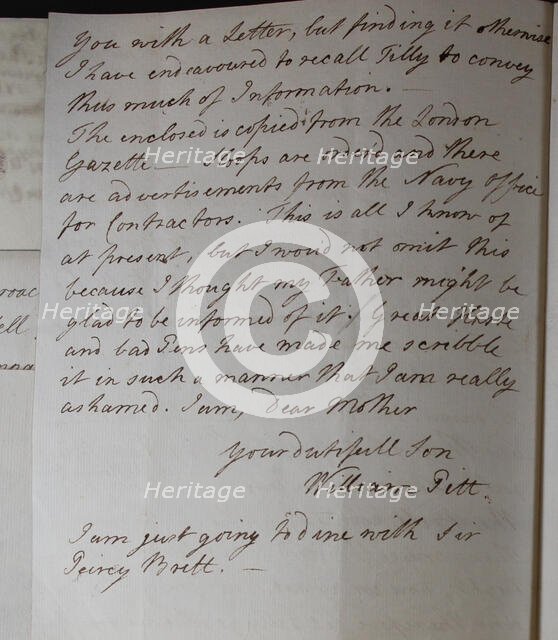 You with a Letter, but finding it otherwise
I have endeavoured to recall Tilly to convey
thus much of Information. —
The enclosed is copied from the London
Gazette are and there
are advertisements from the Navy Office
for Contractors. This is all I know of
at present, but I would not omit this
because I thought my Father might be
glad to be informed of it. Great
and bad Pens have made me scribble
it in such a manner that I am really
ashamed. I am, Dear Mother
Your dutifull Son
William Pitt.
I am just going to dine with Sir
Peircy Brett. —
roac
ell.
Heritage
Heritage
Heritage
Heritage
Heritage
Heritage
Heritage
Heritage
C